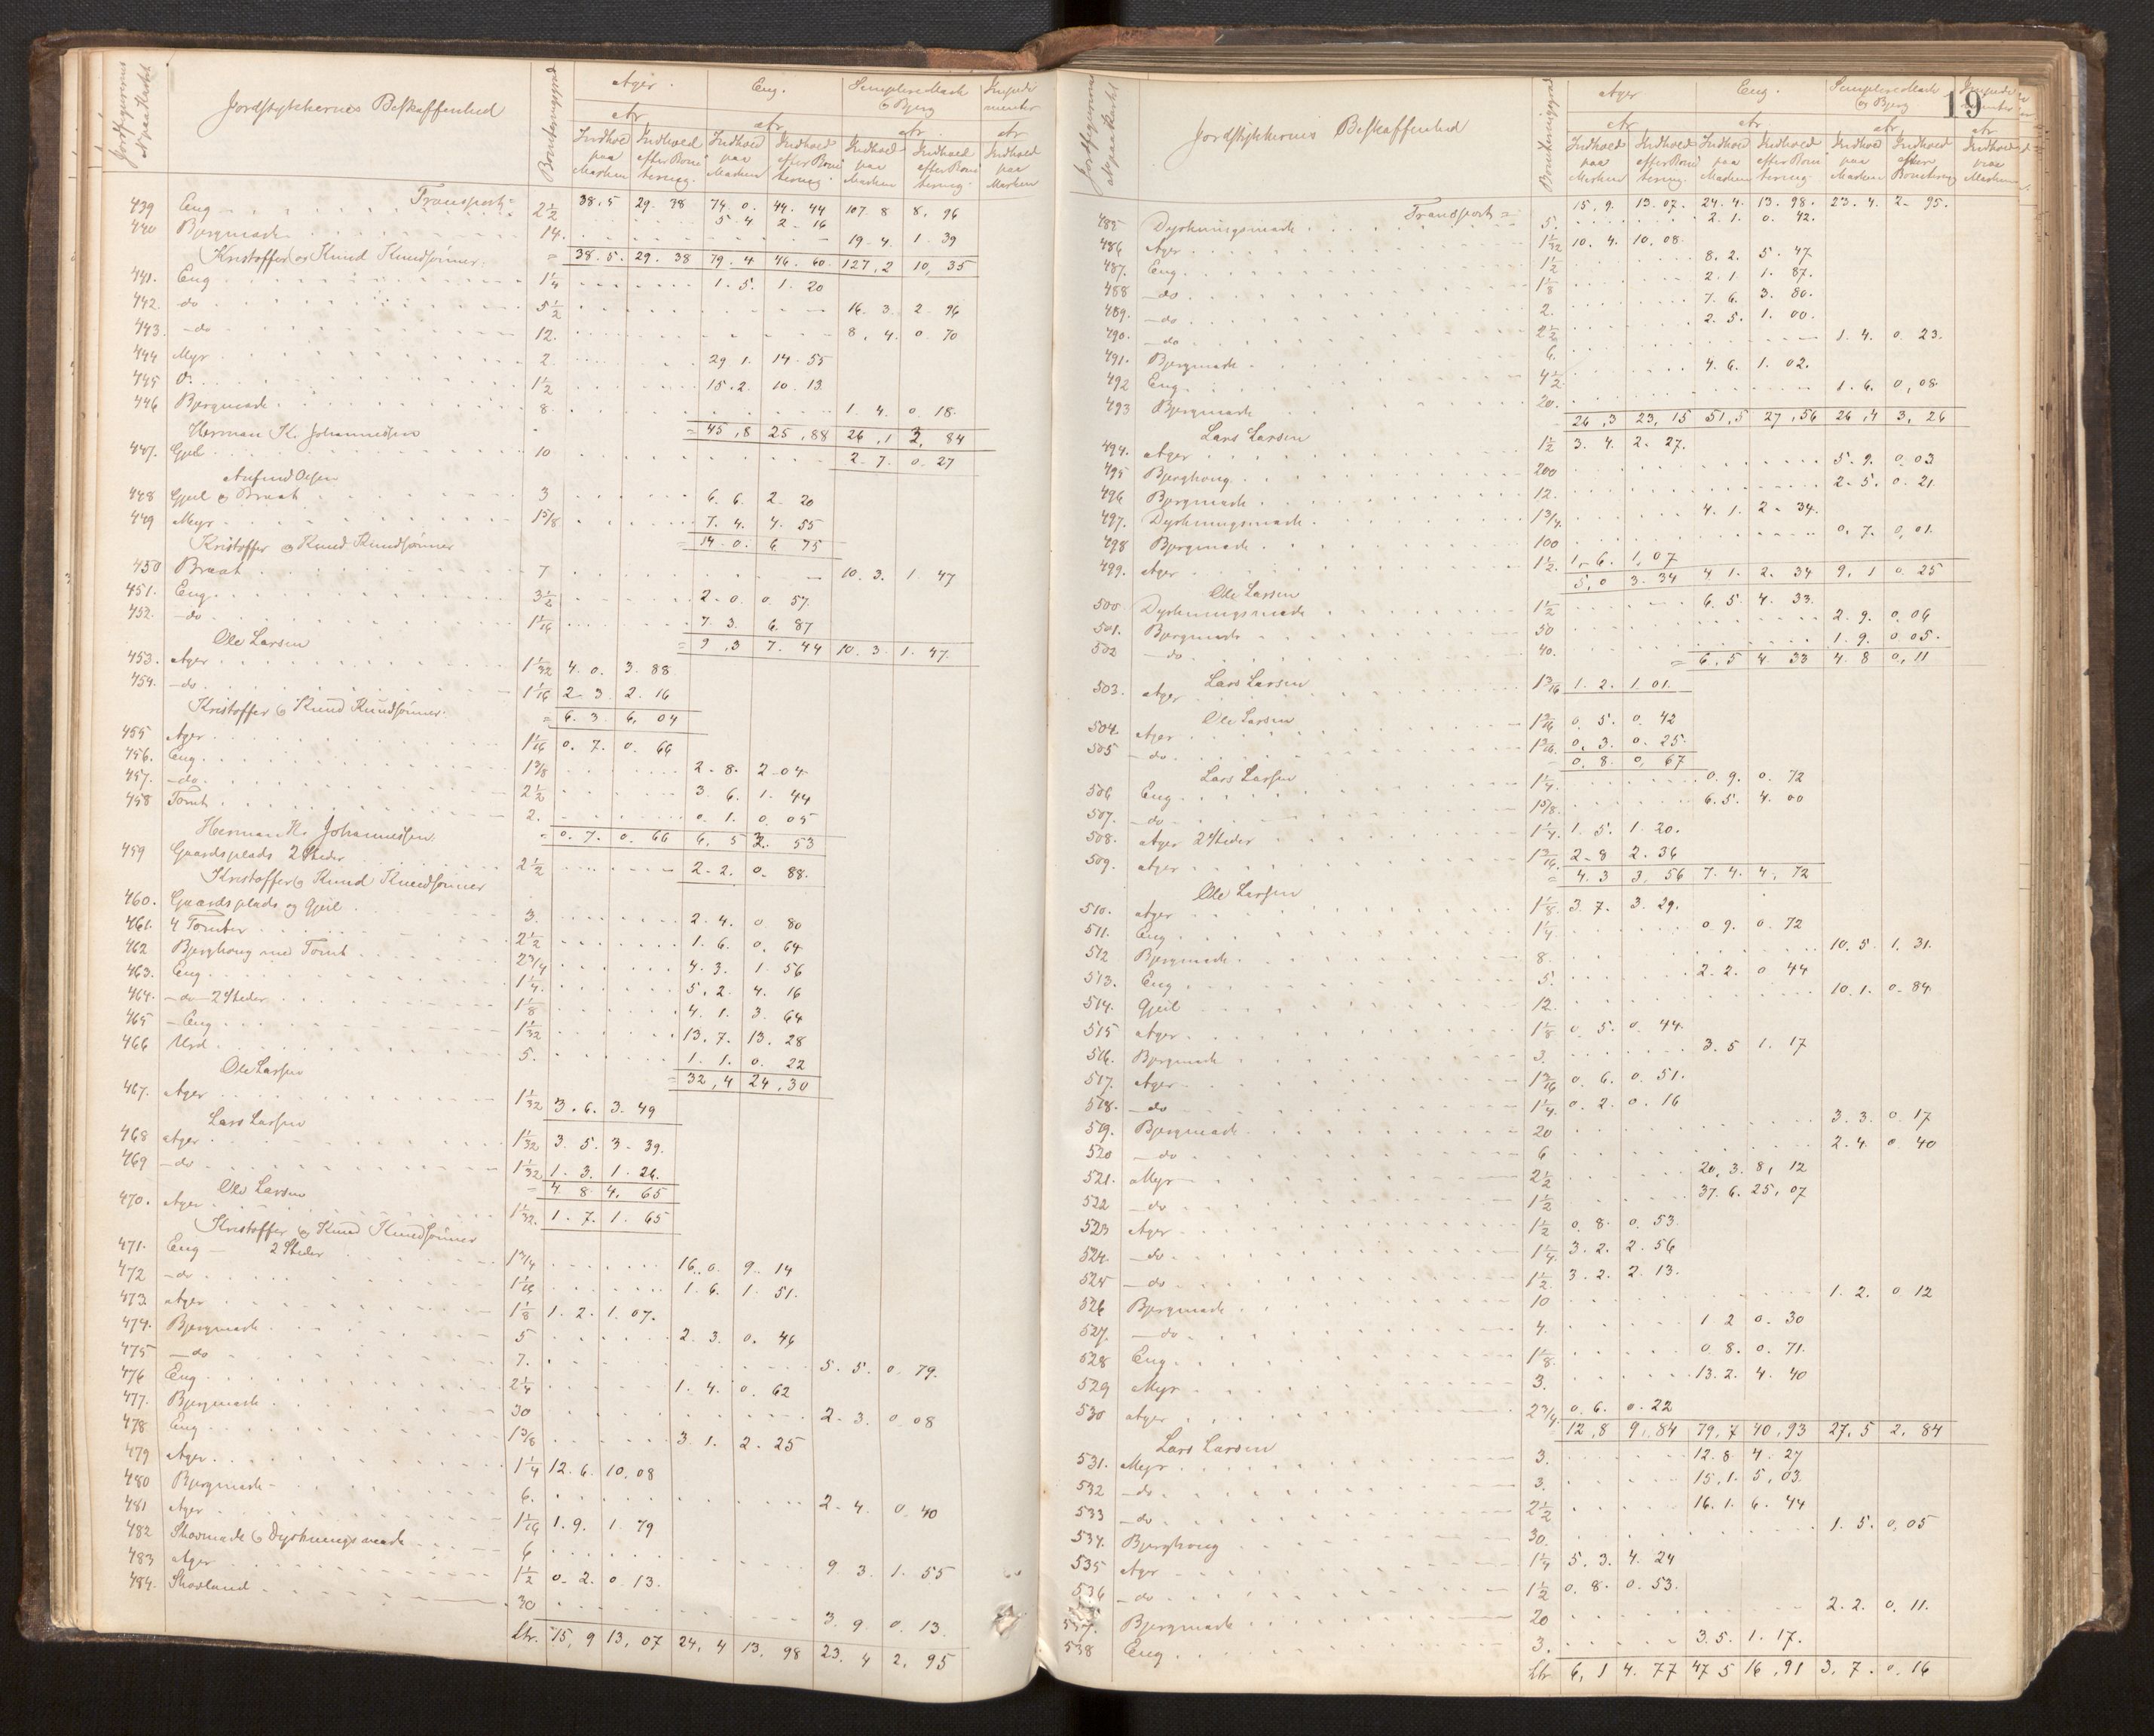 Jordfigurernes № paa Kartet
Jordstykkernes Beskaffenhed
Boniteringsgrad
Ager.
Eng.
Simplere Mark & Bjerg
Impedimenter
Ar
Ar
Ar
Ar
Indhold paa Marken
Indhold efter Bonitering.
Indhold paa Marken
Indhold efter Bonitering.
Indhold paa Marken
Indhold efter Bonitering.
Indhold paa Marken
Transport = 38.5 29.38 74.0. 44.44 107.8 8,96
439 Eng 2½ 5.4 2.16
440 Bjergmark 14. 19.4. 1.39
Kristoffer og Knud Knudsønner. = 38.5. 29.38 79.4 46.60. 127,2 10,35
441. Eng 1¼ 1.5. 1.20
442. do 5½ 16.3. 2.96
443. do 12. 8,4. 0.70
444 Myr 2. 29.1. 14.55
445 d. 1½ 15.2. 10.13.
446 Bjergmark 8. 1.4. 0.18.
Herman K. Johannessen = 45,8 25,88 26,1 3,84
447. Gjeil 10 2.7. 0.27
448 Gjeil & Braat 3 6.6. 2.20
449 Myr 1⅝ 7.4. 4.55
Kristoffer & Knud Knudsønner = 14.0. 6.75
450 Braat 7 10.3. 1.47
451. Eng 3½ 2.0. 0.57.
452. do 1 1/16 7.3. 6.87
Ole Larsen = 9,3 7.44 10.3. 1.47.
453. Ager 1 1/32 4.0. 3.88
454. do 1 1/16 2.3. 2.16
Kristoffer & Knud Knudsønner. = 6.3. 6,04
455 Ager 1 1/16 0.7. 0.66
456. Eng 1⅜ 2.8. 2.04
457. do 2½ 3.6. 1.44
458 Tomt 2. 0.1. 0.05
Herman K. Johannessen = 0.7. 0.66 6,5 3.53
459 Gaardsplads 2 Steder 2½ 2.2. 0.88.
Kristoffer & Knud Knudsønner
460. Gaardsplads og Gjeil 3. 2.4. 0 80
461. 4 Tomter 2½ 1.6. 0.64
462 Berghoug med Tomt 2¾ 4.3. 1.56
463. Eng 1¼. 5.2. 4.16
464. do 2 Steder 1⅛ 4.1. 3.64
465 Eng 1 1/32 13.7. 13.28
466 Urd 5. 1.1. 0.22
Ole Larsen = 32,4 24,30
467. Ager 1 1/32 3.6. 3.49
Lars Larsen
468 Ager 1 1/32 3.5. 3.39.
469 do 1 1/32 1.3. 1.26.
Ole Larsen = 4.8 4.65
470. Ager 1 1/32. 1.7. 1.65
Kristoffer & Knud Knudsønner
471. Eng 2 Steder 1¾ 16.0. 9.14
472 do 1 1/16 1.6. 1.51.
473. Ager 1⅛ 1.2. 1.07.
474. Bjergmark 5 2.3. 0.46
475 do 7. 5.5. 0.79.
476 Eng 2¼ 1.4. 0.62
477. Bjergmark 30 2.3. 0.08
478 Eng 1⅜ 3.1. 2.25
479 Ager 1¼ 12.6. 10.08
480 Bjergmark 6. 2.4. 0.40
481 Ager 1 1/16 1.9. 1.79
482 Skovmark & Dyrkningsmark 6 9 3. 1.55
483 Ager 1½ 0.2. 0 13.
484. Skovland 30 3.9. 0.13.
Ltr. 15,9 13,07 24,4 13.98 23.4 2,95
19
Jordfigurernes № paa Kartet
Jordstykkernes Beskaffenhed
Boniteringsgrad
Ager
Eng.
Simplere Mark og Bjerg
Impedimenter
Ar
Ar.
Ar
Ar
Indhold paa Marken
Indhold efter Bonitering.
Indhold paa Marken
Indhold efter Bonitering.
Indhold paa Marken
Indhold efter Bonitering
Indhold paa Marken
Transport = 15,9. 13.07. 24.4. 13.98. 23.4. 2.95.
485 Dyrkningsmark 5. 2.1. 0.42.
486 Ager 1 1/32 10.4. 10.08.
487. Eng 1½ 8.2. 5.47
488 do 1⅛ 2.1. 1.87.
489. do 2. 7.6. 3.80.
490. do 2½ 2.5. 1.00.
491. Bjergmark 6. 1.4. 0.23.
492 Eng 4½ 4.6. 1.02.
493 Bjergmark 20. 1.6. 0,08.
Lars Larsen 26,3 23,15 51,5 27,56 26,4 3,26
494. Ager 1½ 3.4. 2.27.
495 Berghoug 200 5.9. 0.03
496 Bjergmark 12. 2.5. 0.21
497. Dyrkningsmark 1¾. 4.1. 2.34.
498 Bjergmark 100 0.7. 0,01.
499. Ager 1½. 1.6. 1,07
Ole Larsen 5,0 3.34 4 1. 2.34 9,1 0.25
500 Dyrkningsmark 1½ 6.5. 4.33.
501. Bjergmark 50 2.9. 0.06
502 do 40. 1.9. 0.05.
Lars Larsen = 6,5 4.33 4.8 0,11
503. Ager 1 3/16 1.2. 1.01.
Ole Larsen
504. Ager 1 3/16 0.5. 0.42
505 do 1 3/16. 0.3. 0.25.
Lars Larsen 0.8. 0,67
506 Eng 1¼. 0.9. 0.72
507. do 1⅝. 6.5. 4.00
508. Ager 2 Steder 1¼. 1.5. 1.20.
509. Ager 1 3/16. 2.8 2.36
Ole Larsen = 4.3 3.56 7.4. 4,72
510. Ager 1⅛. 3.7. 3.29.
511. Eng 1¼ 0 9. 0.72
512 Bjergmark 8. 10.5. 1.31.
513. Eng 5. 2.2. 0 44
514. Gjeil 12. 10.1. 0.84.
515 Ager 1⅛ 0.5. 0.44.
516. Bjergmark 3. 3.5 1.17
517. Ager 1 3/16 0.6. 0.51.
518. do 1¼. 0.2. 0.16
519. Bjergmark 20 3.3. 0.17
520 do 6 2.4. 0 40
521. Myr 2½ 20,3. 8,12
522 do 1½ 37.6. 25,07
523 Ager 1½ 0.8. 0.53.
524. do 1¼. 3.2. 2.56
525 do 1½. 3.2. 2.13.
526 Bjergmark 10 1.2. 0 12
527. do 4. 1 2 0.30
528 Eng 1⅛. 0.8. 0.71.
529 Myr 3. 13.2. 4.40
530 Ager 2¾. 0.6. 0.22
Lars Larsen 12,8 9,84 79,7 40,93 27.5 2.84
531. Myr 3. 12.8 4.27
532 do 3. 15.1. 5,03.
533 do 2½ 16.1. 6.44
534. Berghoug 30. 1.5. 0,05
535 Ager 1¼ 5.3. 4.24
536 do 1½ 0.8. 0.53.
537. Bjergmark 20 2.2. 0,11.
538 Eng 3. 3.5. 1.17.
Ltr 6,1 4.77 47 5 16,91 3,7. 0.16